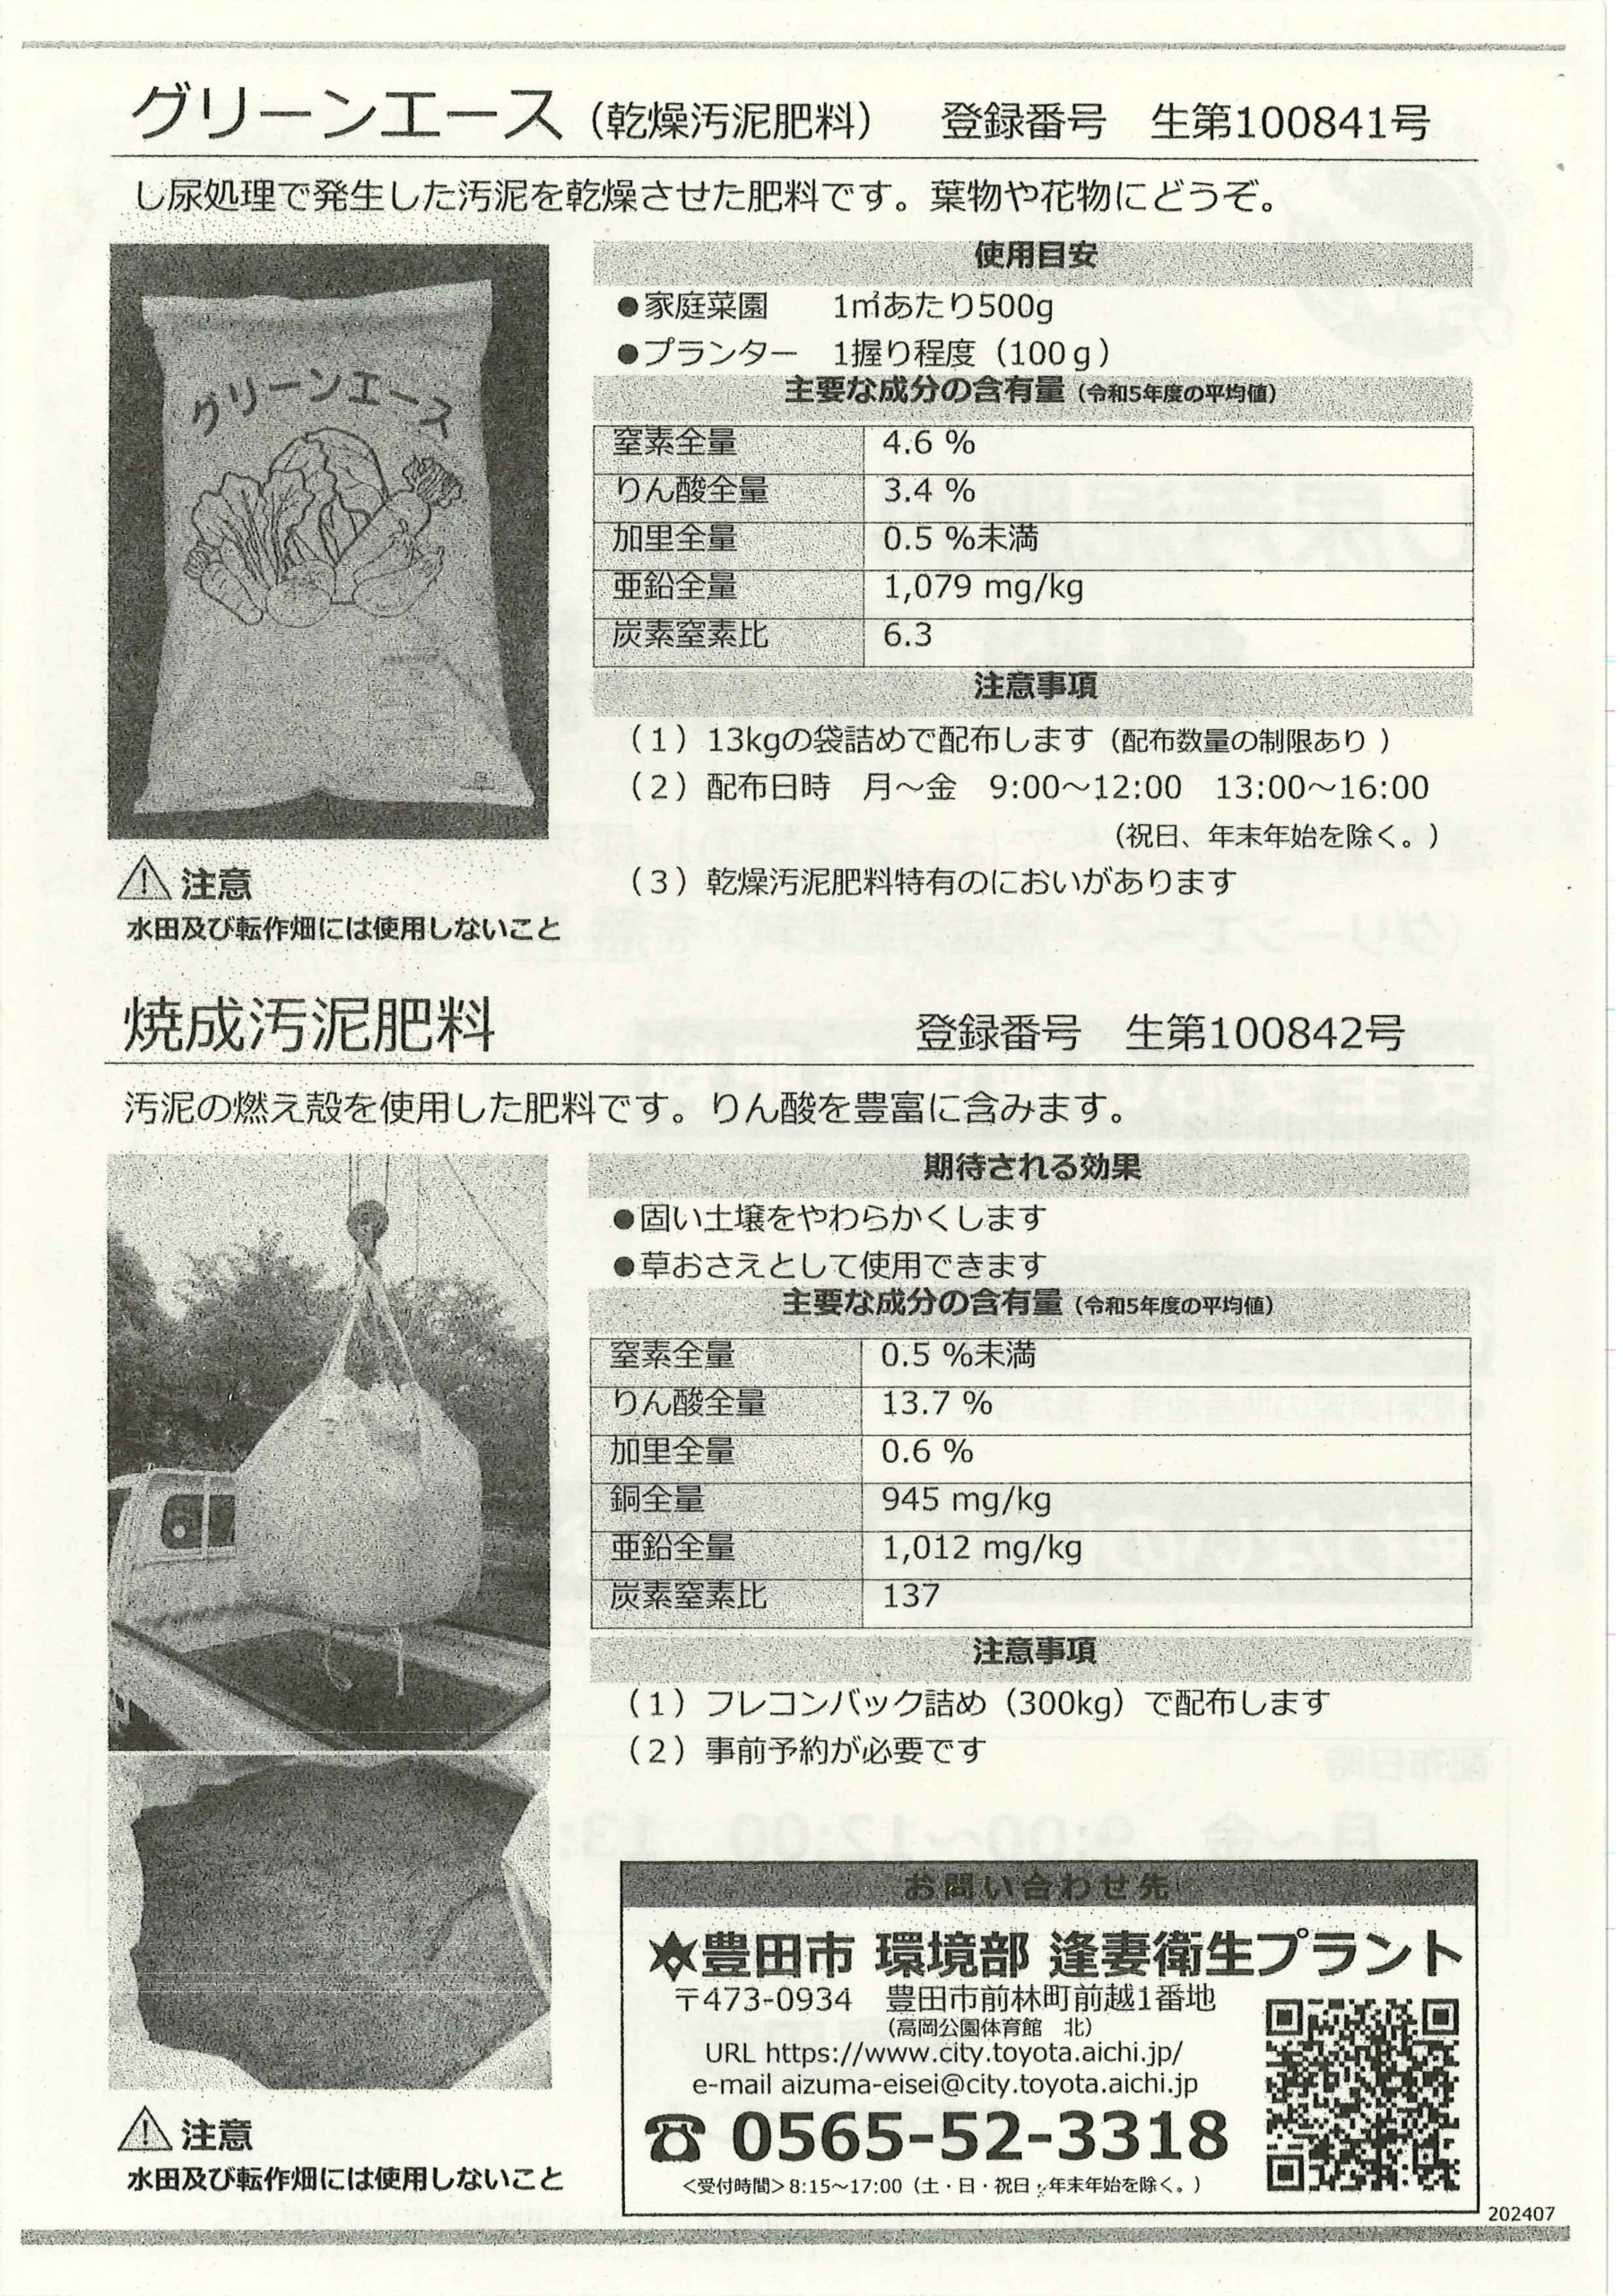 グリーンエース（乾燥汚泥肥料）　登録番号　生第100841号
し尿処理で発生した汚泥を乾燥させた肥料です。葉物や花物にどうぞ。
グリーンエース
使用目安
●家庭菜園　1㎡あたり500g
●プランター　1握り程度（100ｇ）
主要な成分の含有量（令和5年度の平均値）
窒素全量　4.6 %
りん酸全量　3.4 %
加里全量　0.5 %未満
亜鉛全量　1,079 mg/kg
炭素窒素比　6.3
注意事項
（1）13kgの袋詰めで配布します（配布数量の制限あり ）
（2）配布日時　月～金　9:00～12:00　13:00～16:00
（祝日、年末年始を除く。）
（3）乾燥汚泥肥料特有のにおいがあります
注意
水田及び転作畑には使用しないこと
焼成汚泥肥料　登録番号　生第100842号
汚泥の燃え殻を使用した肥料です。りん酸を豊富に含みます。
期待される効果
●固い土壌をやわらかくします
●草おさえとして使用できます
主要な成分の含有量（令和5年度の平均値）
窒素全量　0.5 %未満
りん酸全量　13.7 %
加里全量　0.6 %
銅全量　945 mg/kg
亜鉛全量　1,012 mg/kg
炭素窒素比　137
注意事項
（1）フレコンバック詰め（300kg）で配布します
（2）事前予約が必要です
注意
水田及び転作畑には使用しないこと
お問い合わせ先
豊田市 環境部 逢妻衛生プラント
〒473-0934　豊田市前林町前越1番地
（高岡公園体育館　北）
URL https://www.city.toyota.aichi.jp/
e-mail aizuma-eisei@city.toyota.aichi.jp
☎ 0565-52-3318
＜受付時間＞8:15～17:00（土・日・祝日・年末年始を除く。）
202407